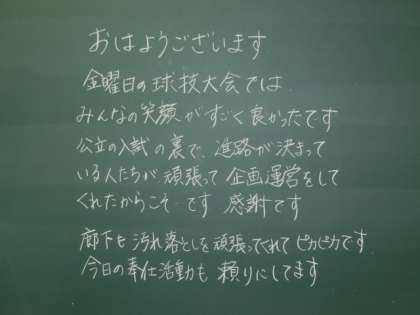 おはようございます
金曜日の球技大会では
みんなの笑顔がすごく良かったです
公立の入試の裏で、進路が決まって
いる人たちが頑張って企画運営をして
くれたからこそです 感謝です
廊下も汚れ落としを頑張ってくれてピカピカです
今日の奉仕活動も頼りにしてます